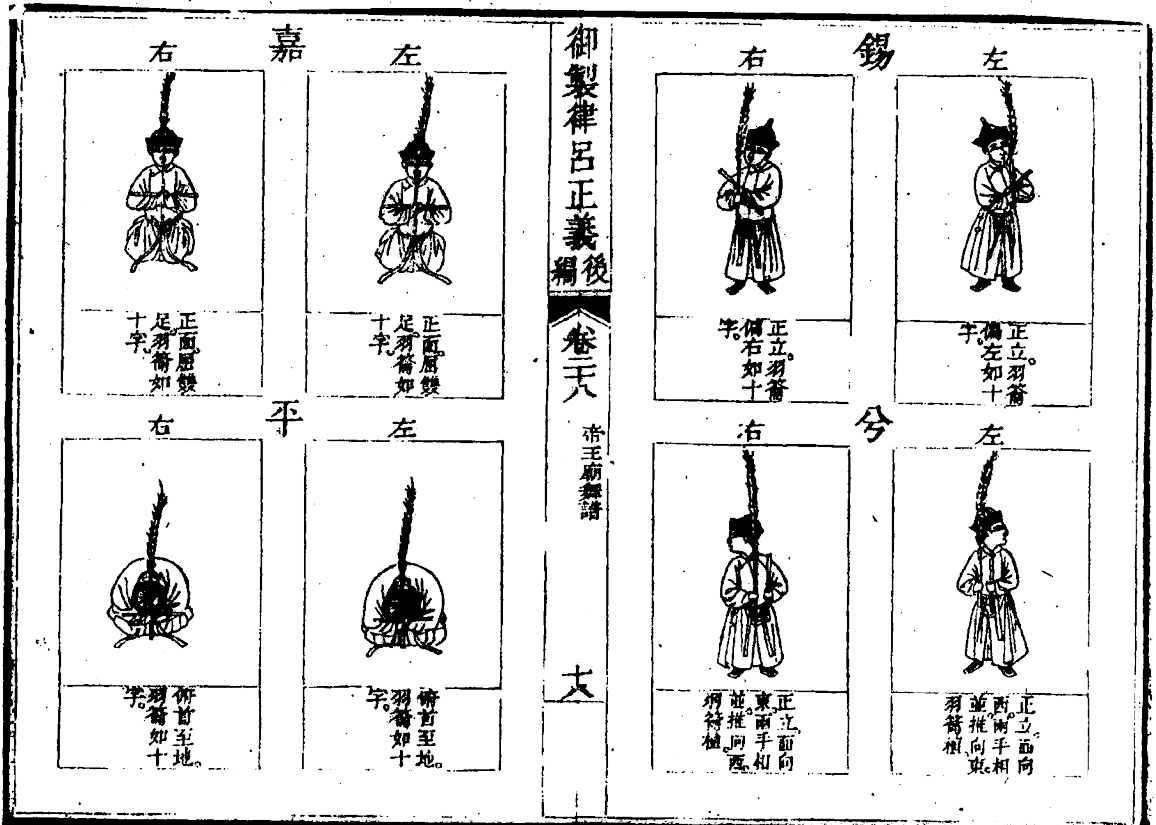 錫
左
正立。羽籥
偏左如十
字。
右
正立。羽籥
偏右如十
字。
兮
左
正立。面向
西。兩手相
並推向東。
羽籥植。
右
正立。面向
東。兩手相
並推向西。
羽籥植。
御製律呂正義後編
卷二十八
帝王廟舞譜
十八
嘉
左
正面。屈雙
足。羽籥如
十字。
右
正面。屈雙
足。羽籥如
十字。
平
左
俯首至地。
羽籥如十
字。
右
俯首至地。
羽籥如十
字。